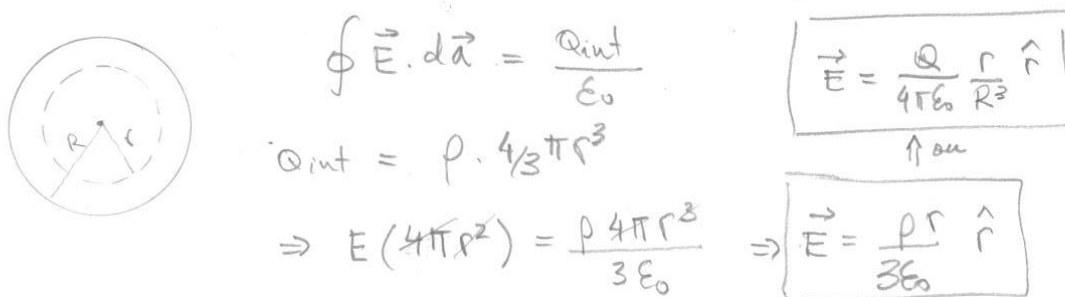 ∮ E⃗ . da⃗ = Qint / ε₀
Qint = ρ . 4/3 π r³
⇒ E (4πr²) = ρ 4π r³ / 3ε₀ ⇒ E⃗ = ρ r / 3ε₀ r̂
↑ ou
E⃗ = Q / 4πε₀ r / R³ r̂
R r